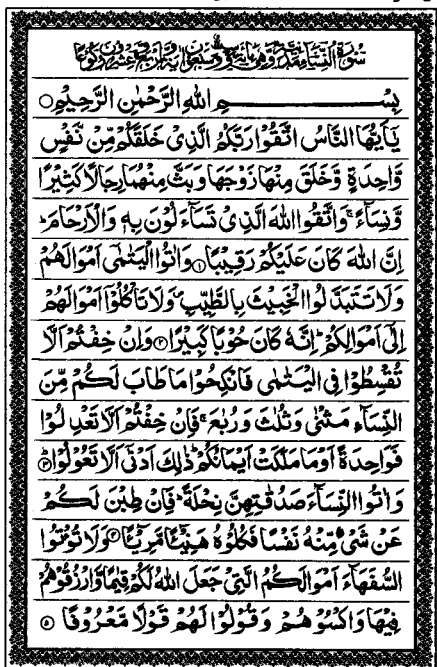 بِسْمِ اللهِ الرَّحْمٰنِ الرَّحِيْمِ ○
يٰۤاَيُّهَا النَّاسُ اتَّقُوْا رَبَّكُمُ الَّذِيْ خَلَقَكُمْ مِّنْ نَّفْسٍ
وَّاحِدَةٍ وَّخَلَقَ مِنْهَا زَوْجَهَا وَبَثَّ مِنْهُمَا رِجَالًا كَثِيْرًا
وَّنِسَآءً ۚ وَاتَّقُوا اللهَ الَّذِيْ تَسَآءَلُوْنَ بِهٖ وَالْاَرْحَامَ ؕ
اِنَّ اللهَ كَانَ عَلَيْكُمْ رَقِيْبًا ۱ وَاٰتُوا الْيَتٰمٰۤى اَمْوَالَهُمْ
وَلَا تَتَبَدَّلُوا الْخَبِيْثَ بِالطَّيِّبِ ۪ وَلَا تَاْكُلُوْۤا اَمْوَالَهُمْ
اِلٰۤى اَمْوَالِكُمْ ؕ اِنَّهٗ كَانَ حُوْبًا كَبِيْرًا ۲ وَاِنْ خِفْتُمْ اَلَّا
تُقْسِطُوْا فِي الْيَتٰمٰى فَانْكِحُوْا مَا طَابَ لَكُمْ مِّنَ
النِّسَآءِ مَثْنٰى وَثُلٰثَ وَرُبٰعَ ۚ فَاِنْ خِفْتُمْ اَلَّا تَعْدِلُوْا
فَوَاحِدَةً اَوْ مَا مَلَكَتْ اَيْمَانُكُمْ ؕ ذٰلِكَ اَدْنٰۤى اَلَّا تَعُوْلُوْا ۳
وَاٰتُوا النِّسَآءَ صَدُقٰتِهِنَّ نِحْلَةً ؕ فَاِنْ طِبْنَ لَكُمْ
عَنْ شَيْءٍ مِّنْهُ نَفْسًا فَكُلُوْهُ هَنِيْٓئًا مَّرِيْٓئًا ۴ وَلَا تُؤْتُوا
السُّفَهَآءَ اَمْوَالَكُمُ الَّتِيْ جَعَلَ اللهُ لَكُمْ قِيٰمًا وَّارْزُقُوْهُمْ
فِيْهَا وَاكْسُوْهُمْ وَقُوْلُوْا لَهُمْ قَوْلًا مَّعْرُوْفًا ۵